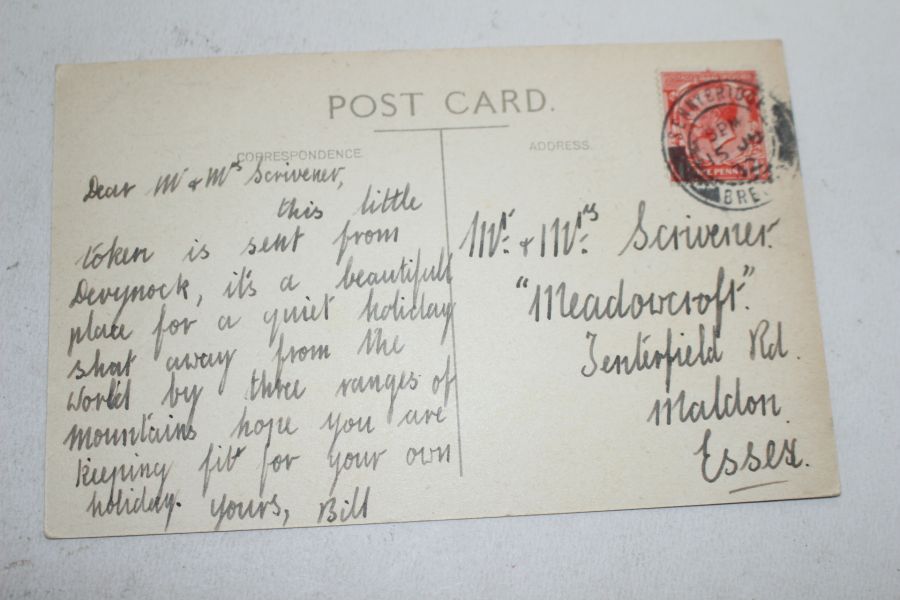 POST CARD.
CORRESPONDENCE
Dear Mr & Mrs Scrivener,
this little
token is sent from
Devynock, it's a beautifull
place for a quiet holiday
shut away from the
world by three ranges of
mountains hope you are
keeping fit for your own
holiday. yours, Bill
ADDRESS.
Mr. & Mrs. Scrivener.
"Meadowcroft".
Tenterfield Rd.
Maldon.
Essex.
SENNYBRIDGE
5 PM
15 JU
32
BREC
PENNY